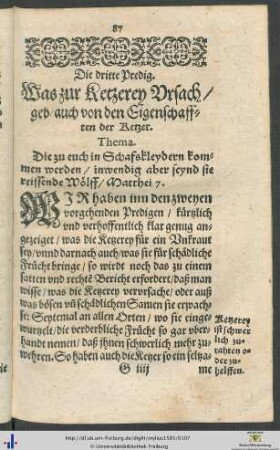 87
Die dritte Predig.
Was zur Ketzerey Vrsach/
geb/auch von den Eigenschaff-
ten der Ketzer.
Thema.
Die zu euch in Schafskleydern kom-
men werden/ inwendig aber seynd sie
reissende Wölff/ Matthei 7.
WIR haben inn den zweyen
vorgehenden Predigen/ kürtzlich
vnd verhoffentlich klar genug an-
gezeiget/ was die Ketzerey für ein Vnkraut
sey/vnnd darnach auch/was sie für schädliche
Frücht bringe/ so wirdt noch das zu einem
satten vnd rechtē Bericht erfordert/daß man
wisse/ was die Ketzerey vervrsache/ oder auß
was bösen vñ schädlichen Samen sie erwach-
se: Seytemal an allen Orten/ wo sie einge-
wurtzelt/ die verderbliche Frücht so gar vber-
handt nemen/ daß jhnen schwerlich mehr zu-
wehren. So haben auch die Ketzer so ein
Ketzerey
ist schwer
lich zu-
der zu-
helffen.
G iiij
me
http://dl.ub.uni-freiburg.de/diglit/mylius1585/0107
© Universitätsbibliothek Freiburg